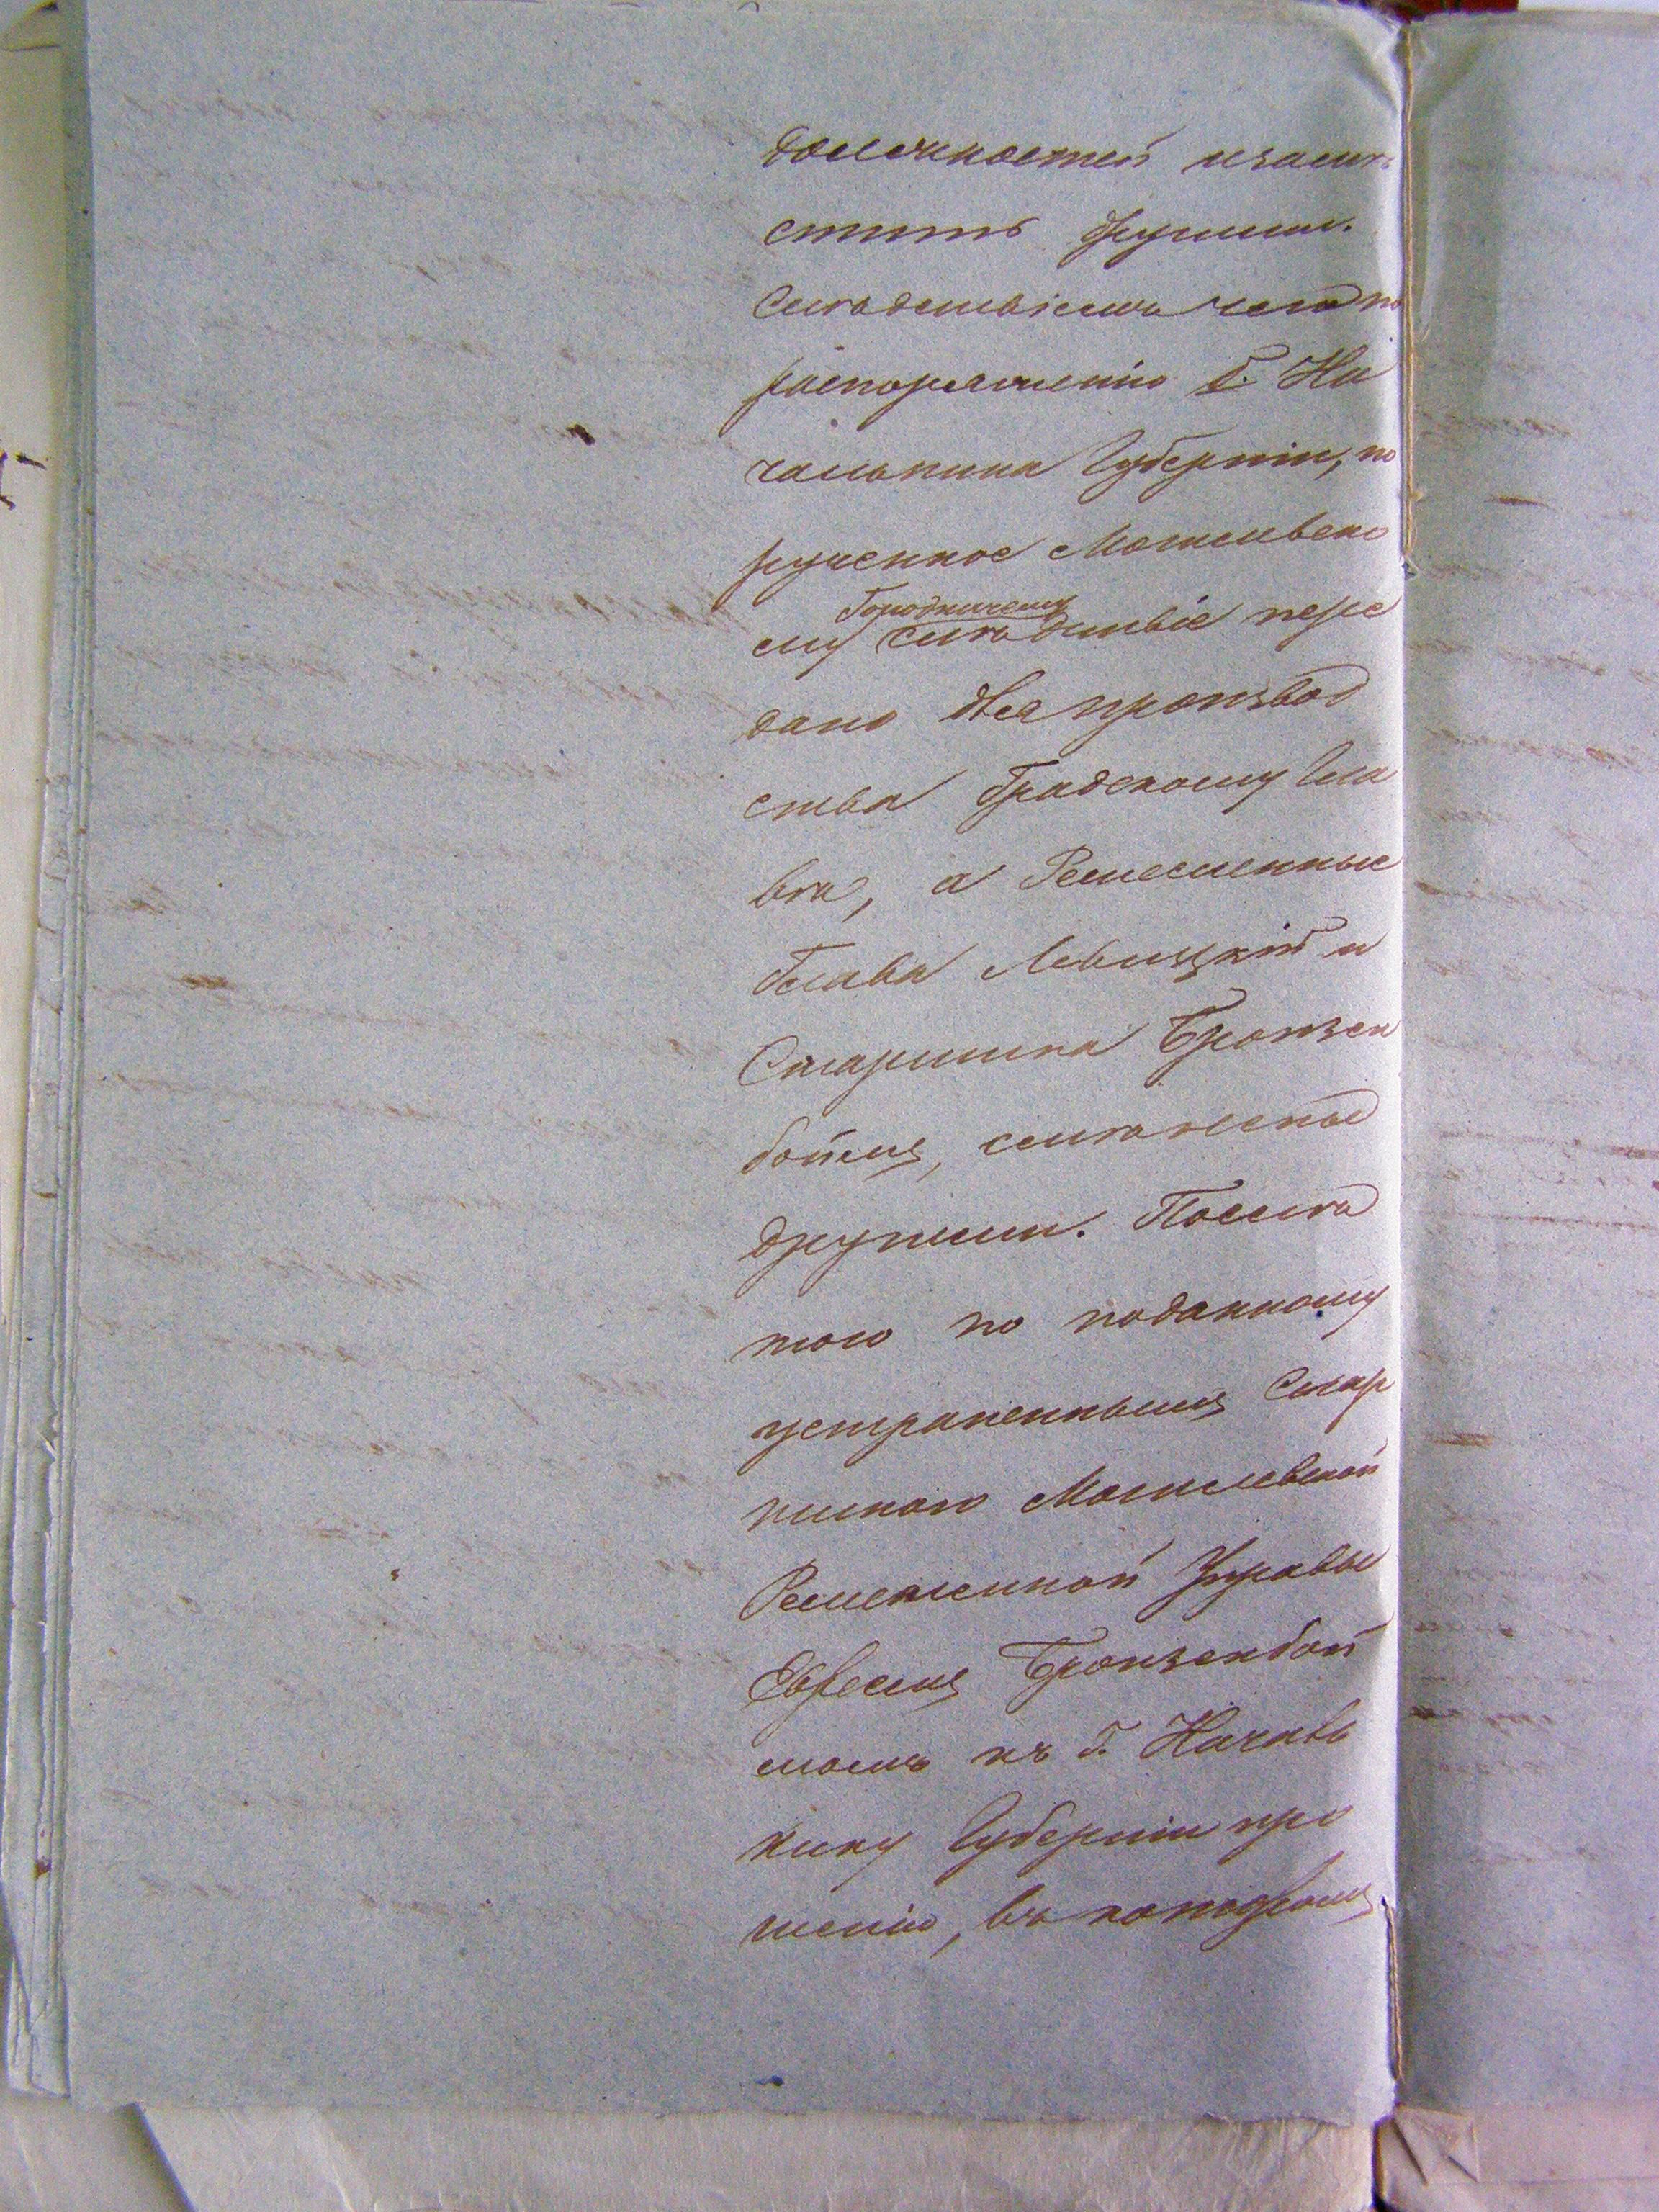 должностей и замѣ
стить другими.
Слѣдствіемъ чего по
распоряженію Г. На
чальника Губерніи, по
рученное Могилевско
му Городничему слѣдствіе пере
дано для производ
ства Градскому Гла
вѣ, а Ремесленные
Глава Левицкій и
Старшина Бронзен
боймъ, смѣнены
другими. Послѣ
того по поданному
устраненнымъ Стар
шиною Могилевской
Ремесленной Управы
Евреемъ Бронзенбой
момъ къ Г. Началь
нику Губерніи про
шенію, въ которомъ